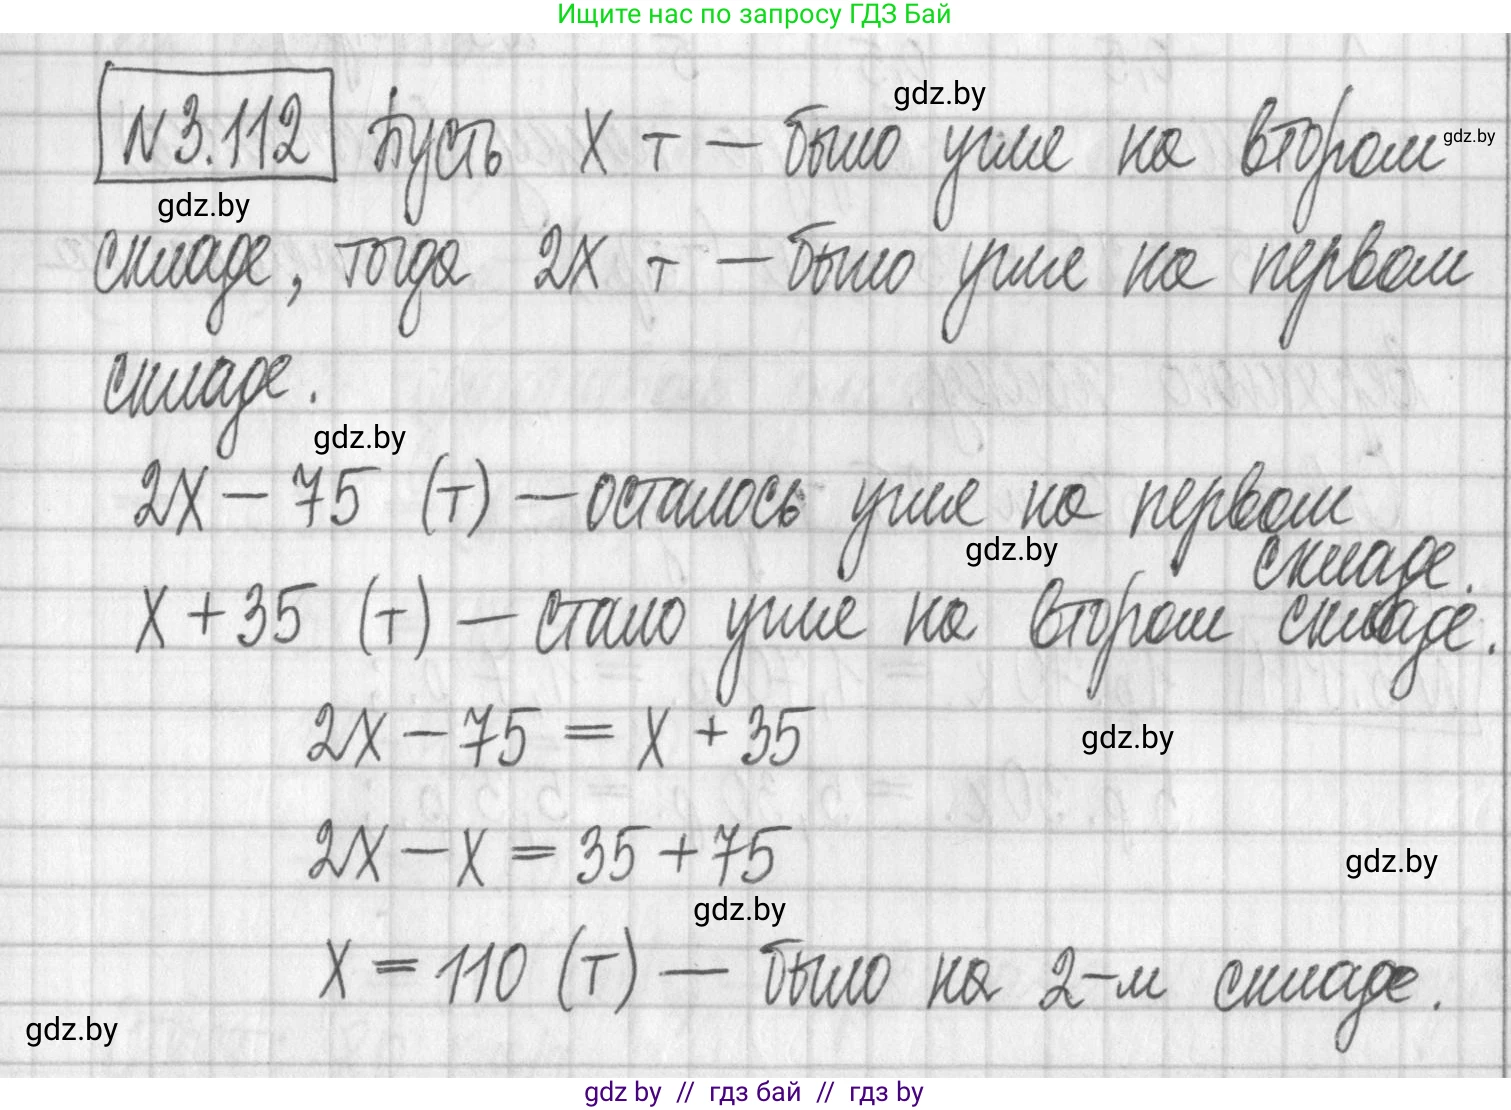 Ищите нас по запросу ГДЗ Бай
N 3.112 Пусть x т — было угля на втором
gdz.by
gdz.by
gdz.by
складе, тогда 2x т — было угля на первом
складе.
gdz.by
2x − 75 (т) — осталось угля на первом
складе.
gdz.by
x + 35 (т) — стало угля на втором складе.
2x − 75 = x + 35
gdz.by
2x − x = 35 + 75
gdz.by
gdz.by
x = 110 (т) — было на 2-м складе.
gdz.by
gdz.by // гдз бай // гдз by